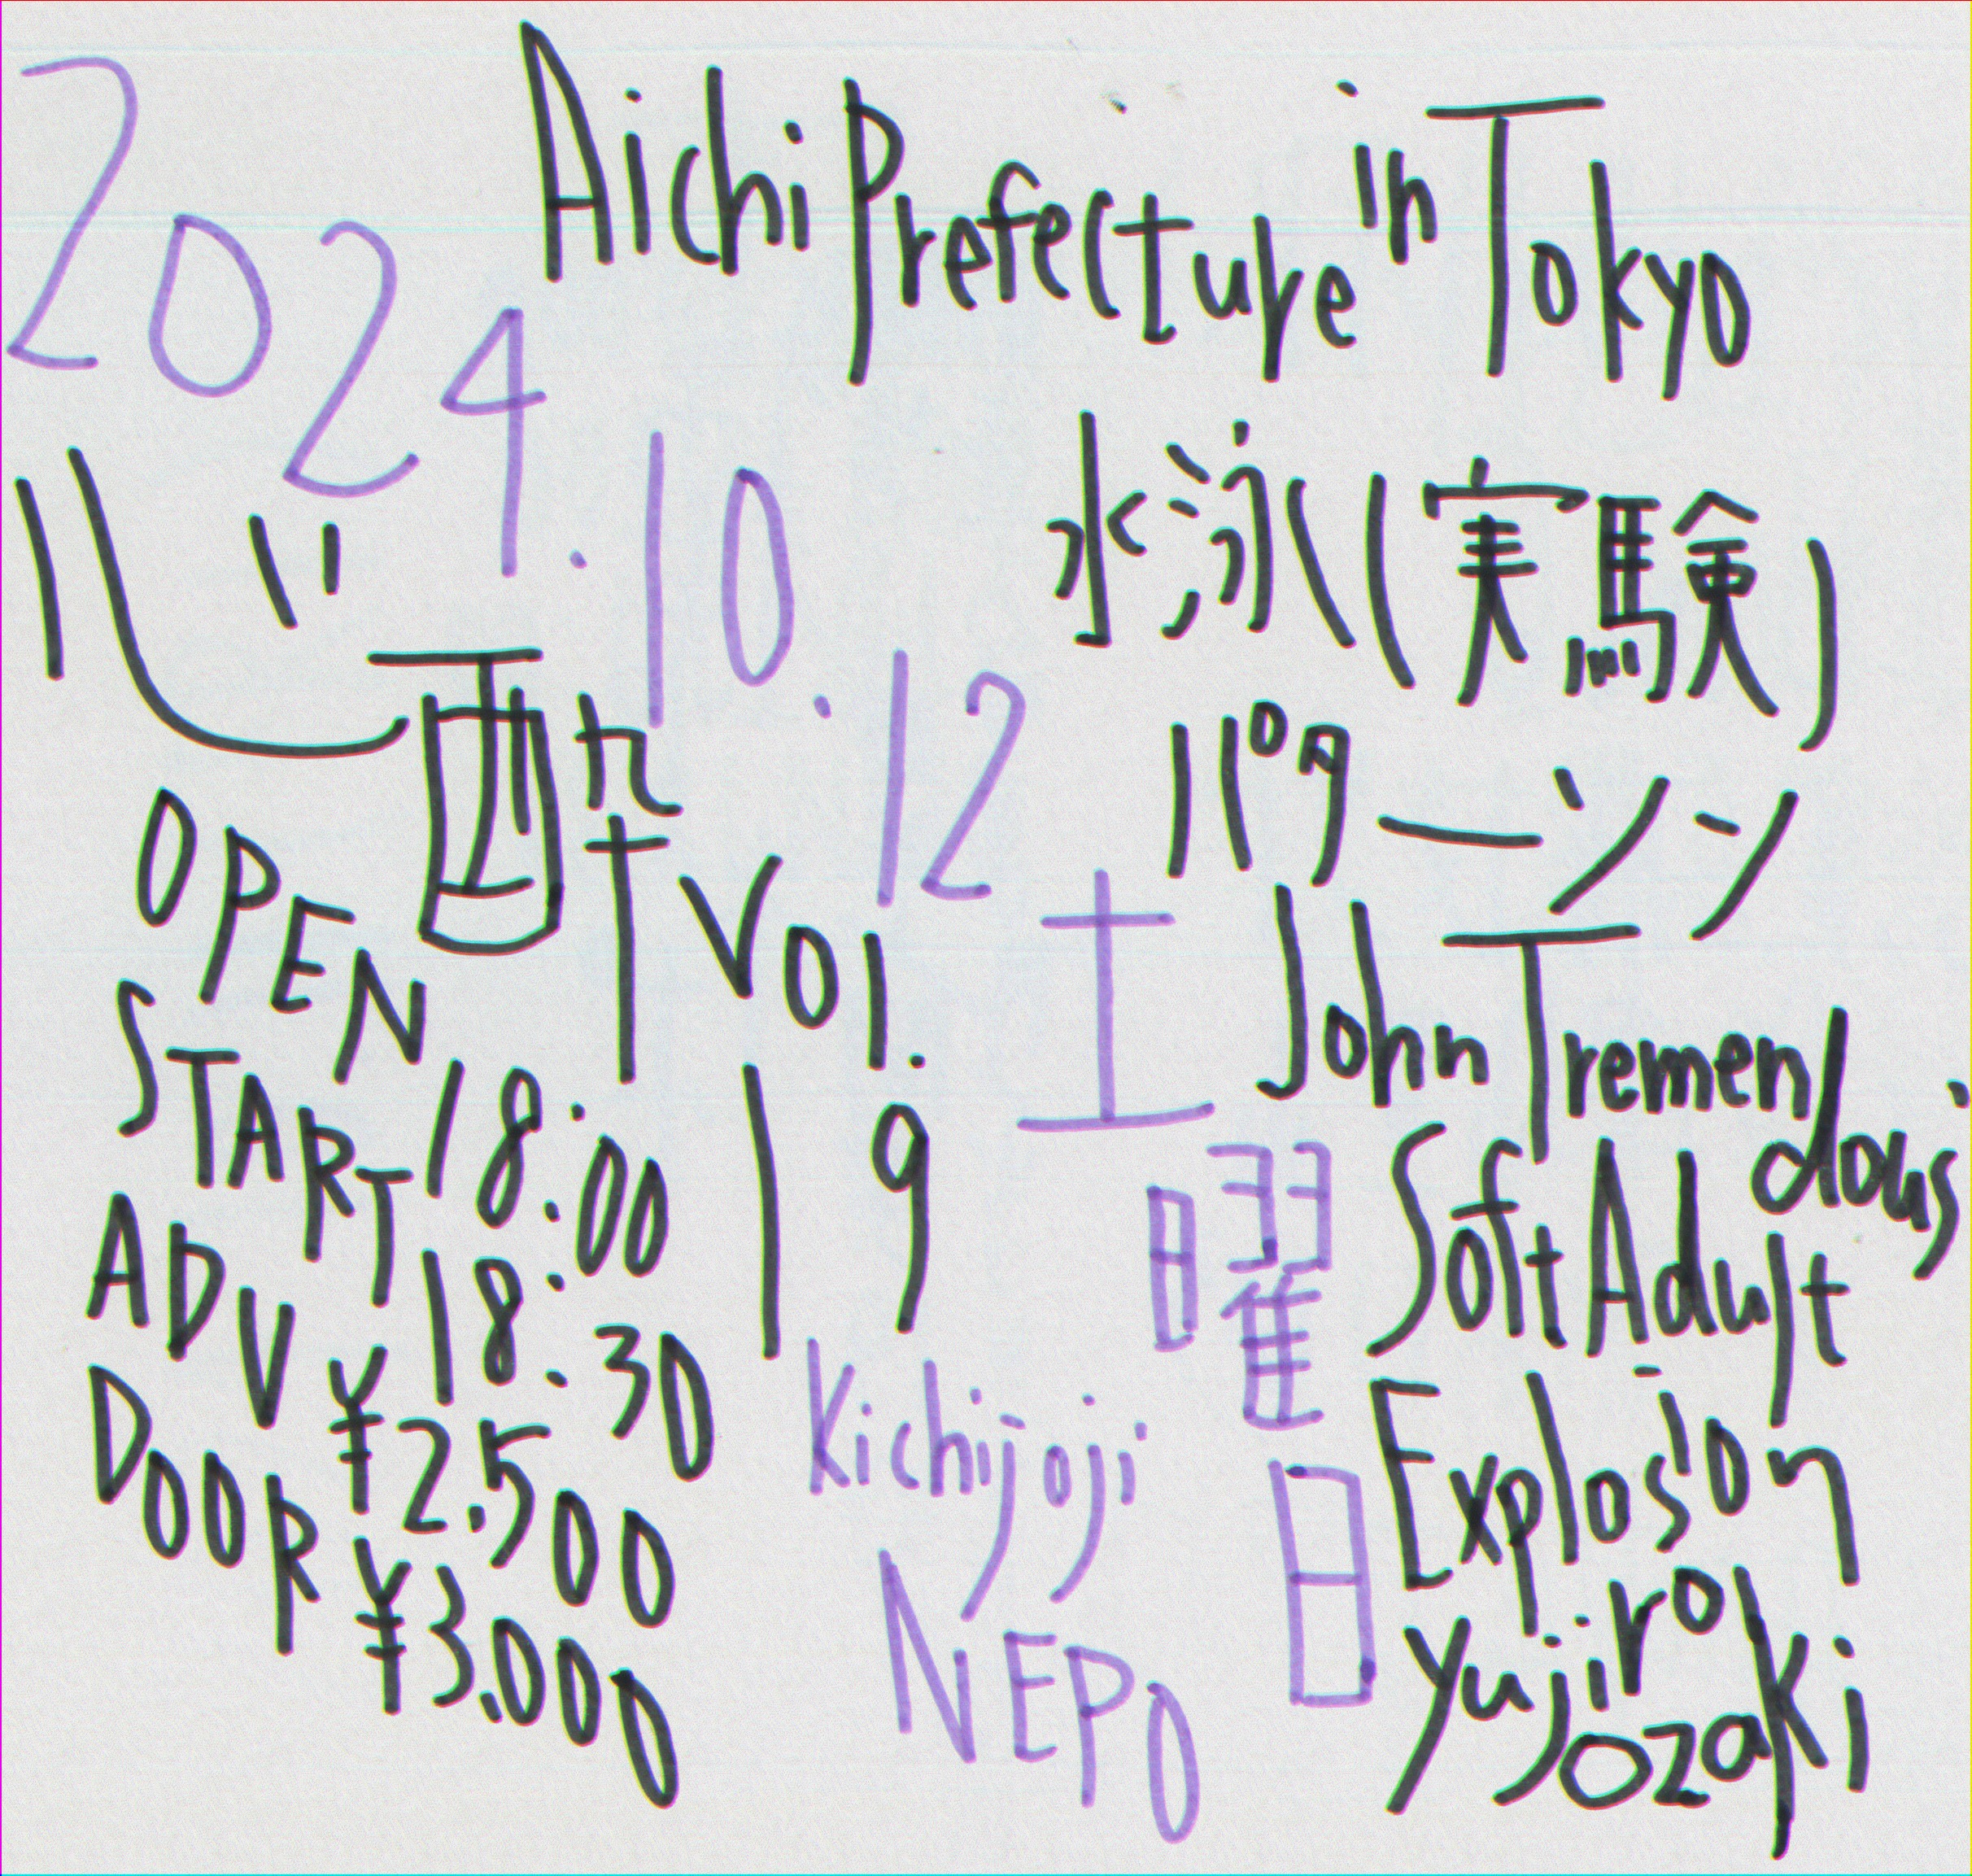 2024.10.12
土
曜
日
Aichi Prefecture in Tokyo
心酔 Vol. 19
OPEN 18:00
START 18:30
ADV ¥2,500
DOOR ¥3,000
Kichijoji
NEPO
水泳(実験)
John Tremendous'
Soft Adult
Explosion
Yujiro
Ozaki